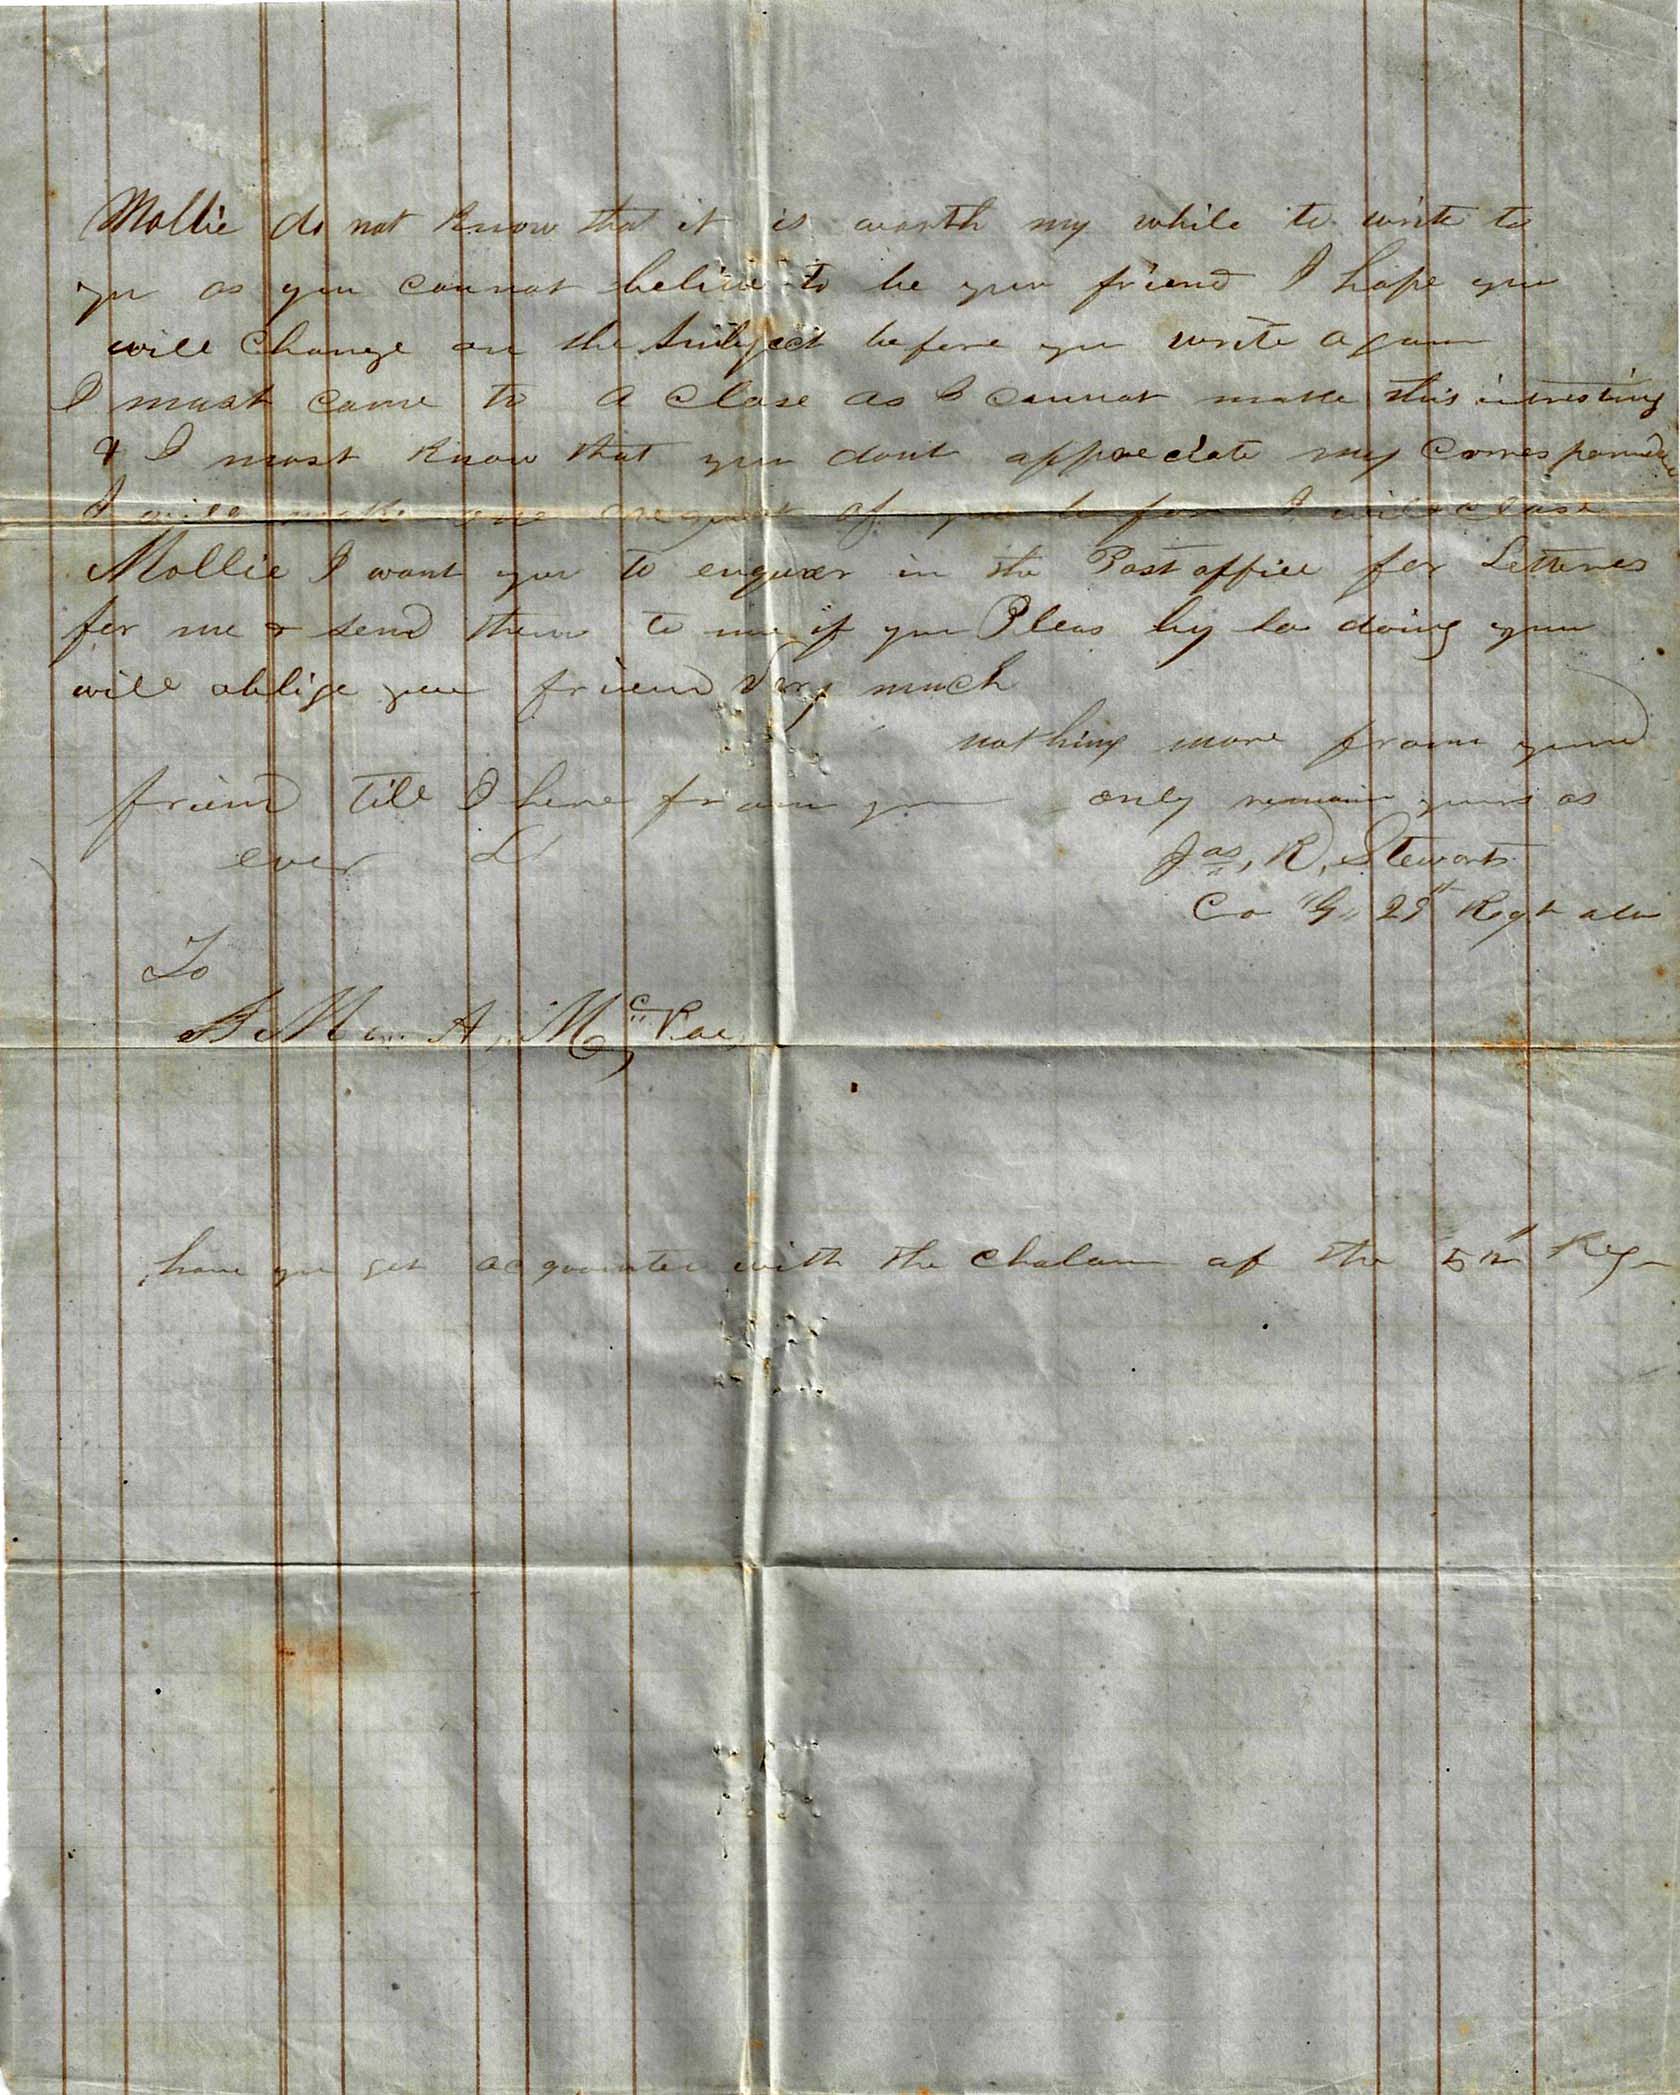 Mollie do not know that it is worth my while to write to
you as you cannot belive to be your friend I hope you
will change on the subject before you write again
I must come to a close as I cannot make this intresting
& I most know that you dont appreciate my correspond
I will make one request of you before I will close
Mollie I want you to enquier in the Post office for Letteres
for me & send them to me if you Pleas by so doing you
will oblige your friend very much
nothing more from your
friend till I here from you only remain yours as
ever
Jas, R, Stewart
Co "G" 29th Regt ala
To
A, McRae
have you got acquainted with the of the 5th Reg